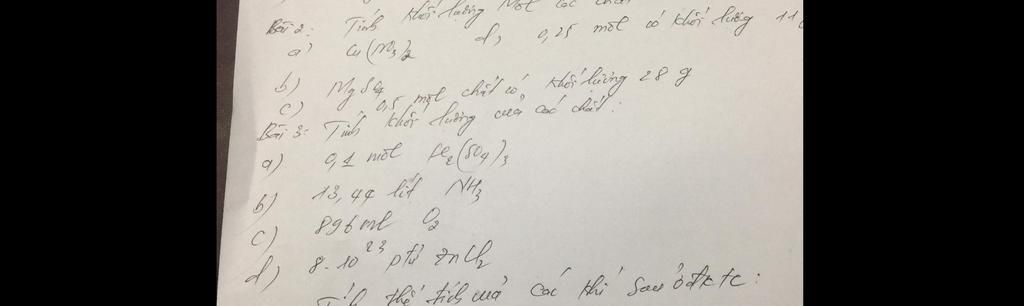 Bài 2: Tính khối lượng Mol các chất
a) Cu(NO3)2 d, 0,25 mol có khối lượng 11
b) MgSO4
c) 0,5 mol chất có khối lượng 28 g
Bài 3: Tính khối lượng của các chất:
a) 0,1 mol Fe2(SO4)3
b) 13,44 lít NH3
c) 896ml O2
d) 8.10^23 ptử ZnCl2
Tính thể tích của các khí sau ở đktc: